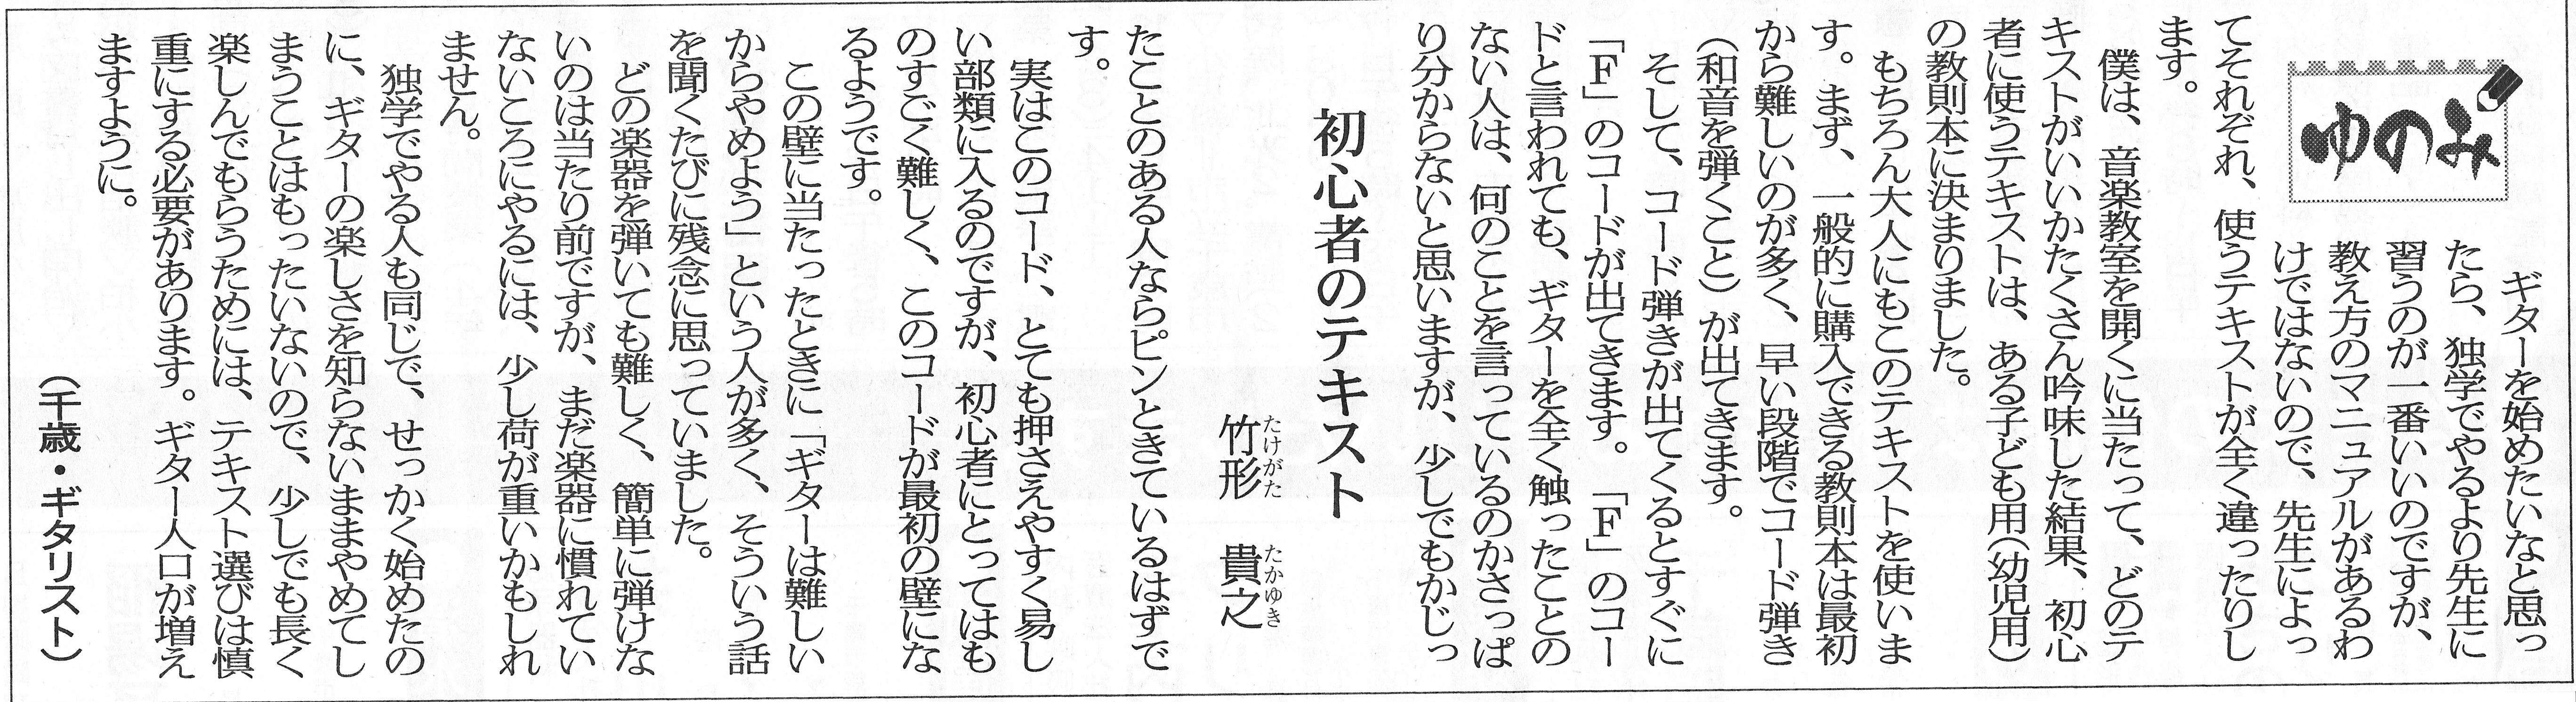 ゆのみ
ギターを始めたいなと思っ
たら、独学でやるより先生に
習うのが一番いいのですが、
教え方のマニュアルがあるわ
けではないので、先生によっ
てそれぞれ、使うテキストが全く違ったりし
ます。
僕は、音楽教室を開くに当たって、どのテ
キストがいいかたくさん吟味した結果、初心
者に使うテキストは、ある子ども用(幼児用)
の教則本に決まりました。
もちろん大人にもこのテキストを使いま
す。まず、一般的に購入できる教則本は最初
から難しいのが多く、早い段階でコード弾き
(和音を弾くこと)が出てきます。
そして、コード弾きが出てくるとすぐに
「F」のコードが出てきます。「F」のコー
ドと言われても、ギターを全く触ったことの
ない人は、何のことを言っているのかさっぱ
り分からないと思いますが、少しでもかじっ
初心者のテキスト
竹形 貴之
たけがた たかゆき
たことのある人ならピンときているはずで
す。
実はこのコード、とても押さえやすく易し
い部類に入るのですが、初心者にとってはも
のすごく難しく、このコードが最初の壁にな
るようです。
この壁に当たったときに「ギターは難しい
からやめよう」という人が多く、そういう話
を聞くたびに残念に思っていました。
どの楽器を弾いても難しく、簡単に弾けな
いのは当たり前ですが、まだ楽器に慣れてい
ないころにやるには、少し荷が重いかもしれ
ません。
独学でやる人も同じで、せっかく始めたの
に、ギターの楽しさを知らないままやめてし
まうことはもったいないので、少しでも長く
楽しんでもらうためには、テキスト選びは慎
重にする必要があります。ギター人口が増え
ますように。
(千歳・ギタリスト)